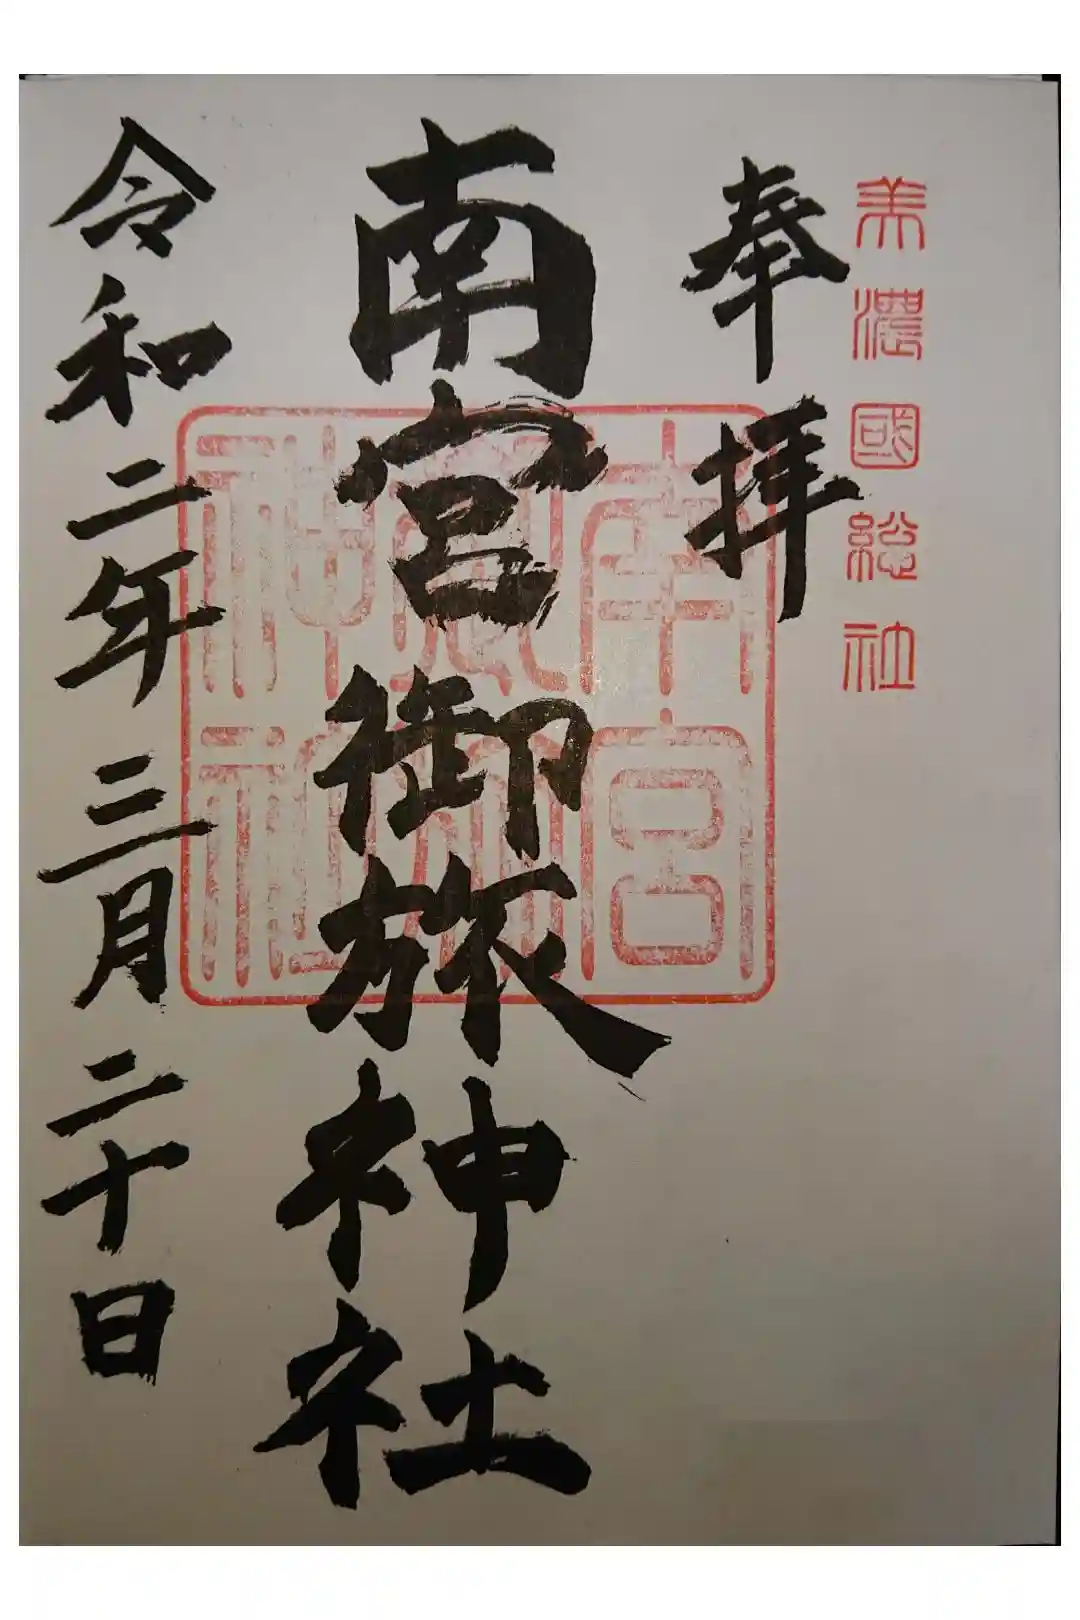 美濃國総社
奉拝
南宮御旅神社
令和二年三月二十日
南宮
神社